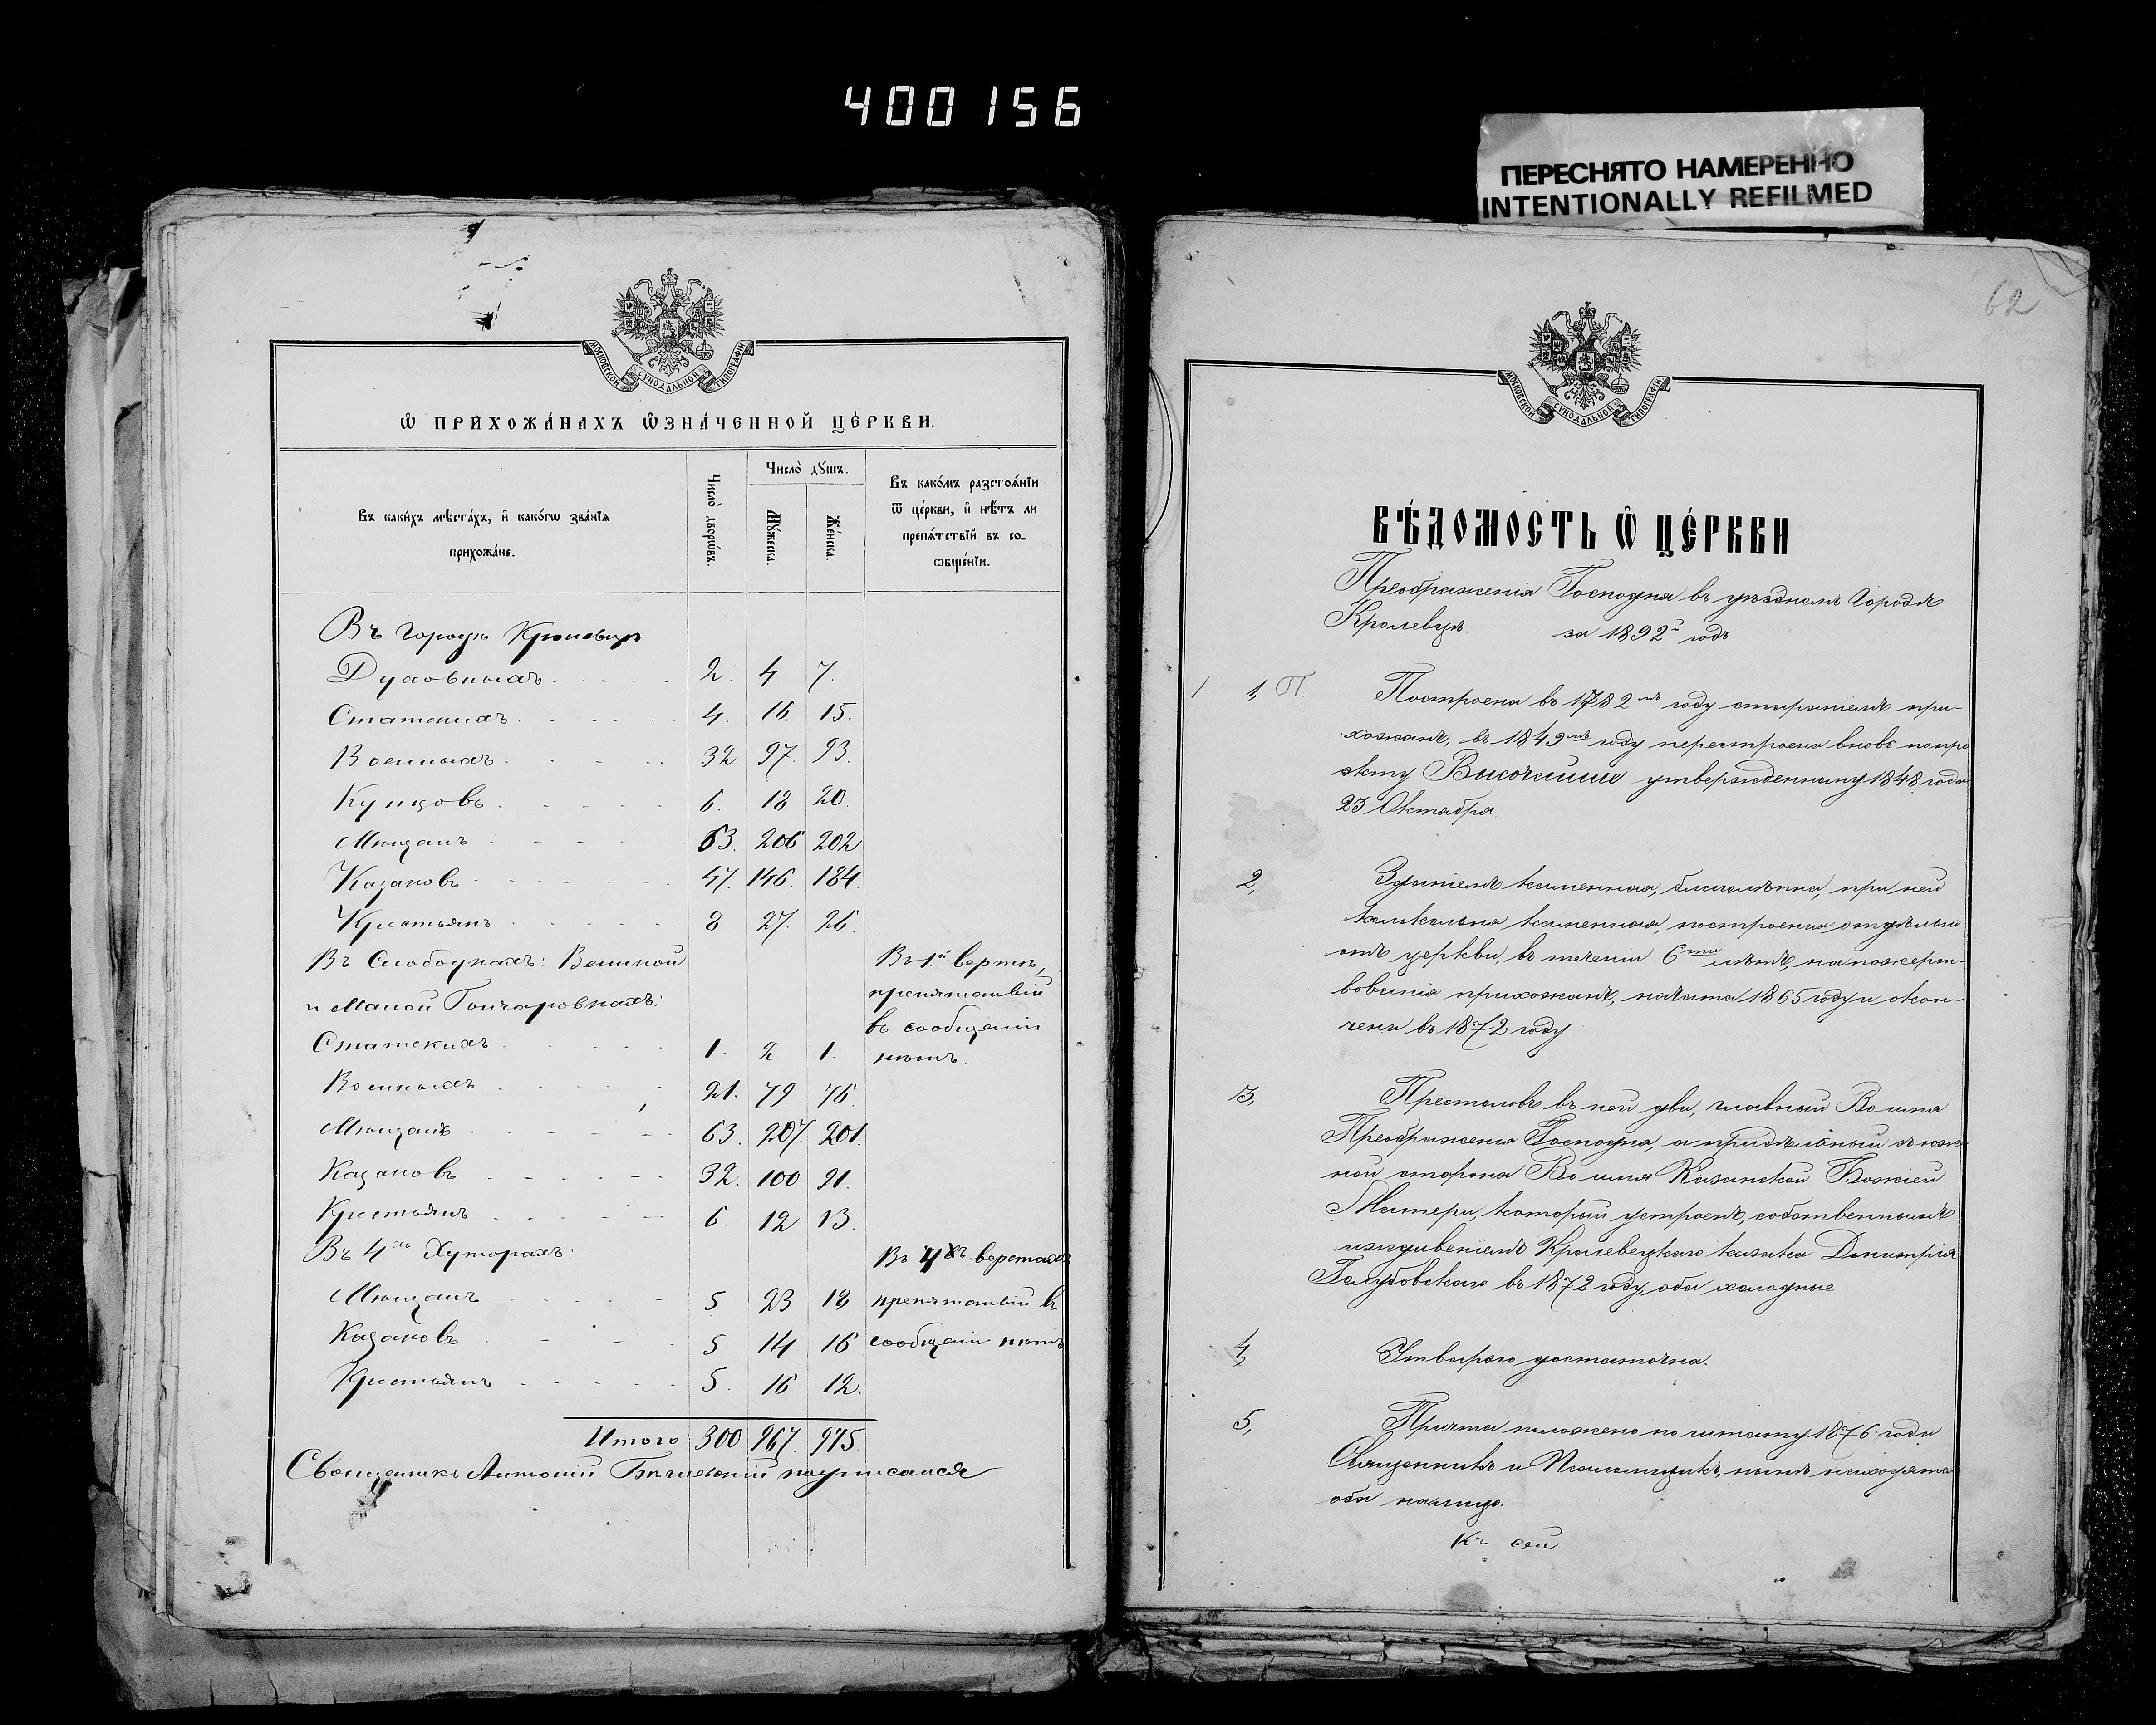 400156
ПЕРЕСНЯТО НАМЕРЕННО
INTENTIONALLY REFILMED
МОСКОВСКОЙ СѴНОДАЛЬНОЙ ТИПОГРАФІИ
Ѡ ПРИХОЖА́НАХЪ Ѡ҆ЗНА́ЧЕННОЙ ЦЕ́РКВИ.
Въ каки́хъ мѣста́хъ, и҆ како́гѡ зва́нїѧ прихожа́не.
Число̀ дворѡ́въ.
Число̀ дꙋ́шъ.
Мꙋ́жеска.
Же́нска.
Въ како́мъ разстоѧ́нїи ѿ це́ркви, и҆ нѣ́тъ ли препѧ́тствїй въ сообще́нїи.
Въ городѣ Кролевцѣ
Духовныхъ 2. 4 7.
Статскихъ 4. 16. 15.
Военныхъ 32 97. 93.
Купцовъ 6. 18 20.
Мѣщанъ 63. 206 202
Казаковъ 47. 146. 184.
Крестьянъ 8 27. 26.
Въ Слободкахъ: Великой
и Малой Гончаровкахъ:
Въ 1й верстѣ,
препятствій
въ сообщеніи
нѣтъ.
Статскихъ 1. 2 1.
Военныхъ 21. 79 76.
Мѣщанъ 63. 207. 201.
Казаковъ 32. 100 91.
Крестьянъ 6. 12 13.
Въ 4хъ Хуторахъ:
Въ 4хъ верстахъ
препятствій въ
сообщеніи нѣтъ
Мѣщанъ 5 23 18
Казаковъ 5 14 16
Крестьянъ 5. 16 12.
Итого 300 967. 975.
Священникъ Антоній подписался
62
МОСКОВСКОЙ СѴНОДАЛЬНОЙ ТИПОГРАФІИ
ВѢ́ДОМОСТЬ Ѡ ЦЕ́РКВИ
Преображенія Господня въ уѣздномъ городѣ
Кролевцѣ. за 1892й годъ
1, П. Построена въ 1782мъ году стараніемъ при-
хожанъ, въ 1849мъ году перестроена вновь по про
экту Высочайше утвержденному 1848 года
23 Октября.
2, Зданіемъ каменная, благолѣпна, при ней
колокольня каменная, построена отдѣльно
отъ церкви, въ теченіи 6ти лѣтъ, на пожерт-
вованія прихожанъ, начата 1865 году и окон-
чена въ 1872 году
3, Престоловъ въ ней два, главный Во имя
Преображенія Господня, а придѣльный съ юж
ной стороны Во имя Казанской Божіей
Матери, который устроенъ, собственнымъ
иждивеніемъ Кролевецкаго казака Димитрія
Голубовскаго въ 1872 году, оба холодные
4, Утварью достаточна.
5, Причта положено по штату 1876 года
Священникъ и Псаломщикъ, нынѣ находятся
оба налицо.
Къ сей